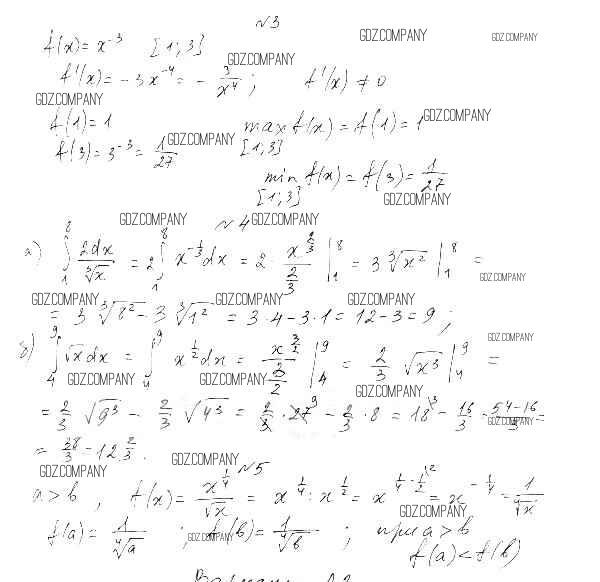 №3
f(x) = x⁻³ [1; 3] GDZ.COMPANY GDZ.COMPANY
GDZ.COMPANY
f'(x) = -3x⁻⁴ = -3/x⁴; f'(x) ≠ 0
GDZ.COMPANY
f(1) = 1 max f(x) = f(1) = 1 GDZ.COMPANY
[1; 3]
f(3) = 3⁻³ = 1/27 GDZ.COMPANY
min f(x) = f(3) = 1/27
[1; 3] GDZ.COMPANY
GDZ.COMPANY №4 GDZ.COMPANY
а) ∫₁⁸ 2dx/∛x = 2∫₁⁸ x^(-1/3)dx = 2 · x^(2/3)/(2/3) |₁⁸ = 3∛x² |₁⁸ =
GDZ.COMPANY
GDZ.COMPANY GDZ.COMPANY GDZ.COMPANY
= 3∛8² - 3∛1² = 3·4 - 3·1 = 12 - 3 = 9;
GDZ.COMPANY
б) ∫₄⁹ √x dx = ∫₄⁹ x^(1/2)dx = x^(3/2)/(3/2) |₄⁹ = 2/3 √x³ |₄⁹ =
GDZ.COMPANY GDZ.COMPANY GDZ.COMPANY
= 2/3 √9³ - 2/3 √4³ = 2/3 · 27⁹ - 2/3 · 8 = 18\³ - 16/3 = (54-16)/3 =
GDZ.COMPANY
= 38/3 = 12 2/3.
GDZ.COMPANY GDZ.COMPANY №5
a > b, f(x) = x^(1/4)/√x = x^(1/4) : x^(1/2) = x^(1/4 - 1/2\²) = x^(-1/4) = 1/⁴√x
GDZ.COMPANY
f(a) = 1/⁴√a; f(b) = 1/⁴√b; при a > b
GDZ.COMPANY
f(a) < f(b)